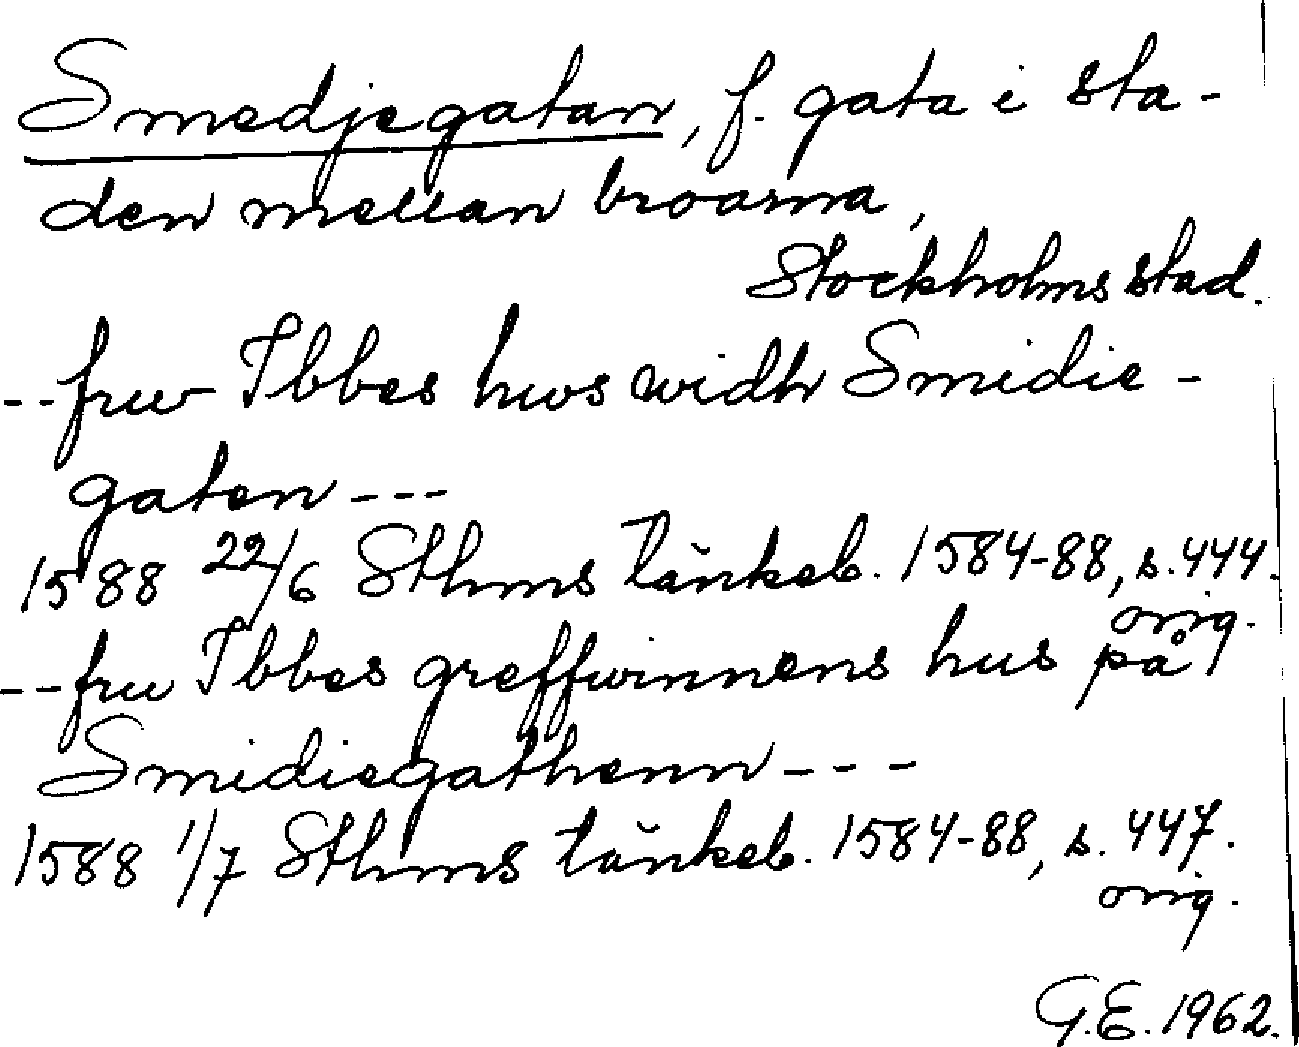 Smedjegatan, f. gata i sta-
den mellan broarna,
Stockholms stad.
--fruw Ibbes hws widh Smidie-
gaten---
1588 22/6 Sthms tänkeb. 1584-88, s. 444.
orig.
--fru Ibbes greffwinnens hus på
Smidiegathenn---
1588 1/7 Sthms tänkeb. 1584-88, s. 447.
orig.
G.E. 1962.